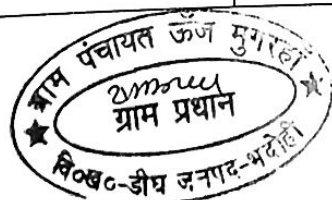 ग्राम पंचायत ऊँज मुगरहा
ग्राम प्रधान
वि०ख०-डीघ जनपद-भदोही